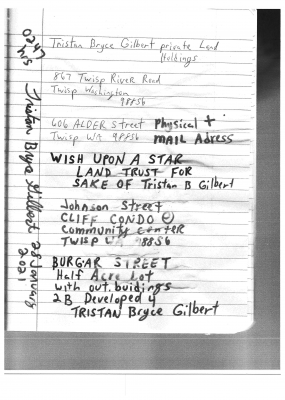 Tristan Bryce Gilbert private Land
Holdings
867 Twisp River Road
Twisp Washington
98856
606 ALDER Street Physical +
Twisp WA 98856 MAIL Adress
WISH UPON A STAR
LAND TRUST FOR
SAKE OF Tristan B Gilbert
Johnson Street
CLIFF CONDO @
Community Center
TWISP WA 98856
BURGAR STREET
Half Acre Lot
with out buidings
2B Developed 4
TRISTAN Bryce Gilbert
Tristan Bryce Gilbert 28 January
2021